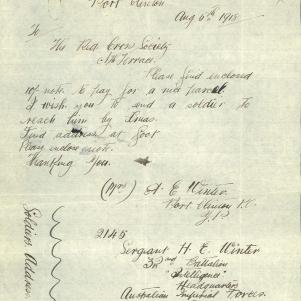 Port Clinton
Aug 6th 1918
To
The Red Cross Society
Nth Terrace.
Please find enclosed
10/- note. to pay for a nice parcel
I wish you to send a soldier to
reach him by Xmas.
Find address at foot
Please enclose
Thanking You.
(Mrs) H. E Winter.
Port Clinton P.O.
Y.P.
2145
Sergeant H. E. Winter
Battalion
"Intelligence"
Headquarters
Australian Imperial Forces.
Soldiers Address